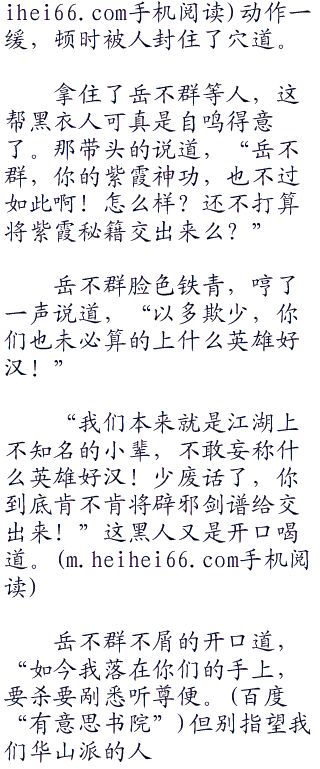 ihei66.com手机阅读)动作一
缓，顿时被人封住了穴道。
拿住了岳不群等人，这
帮黑衣人可真是自鸣得意
了。那带头的说道，“岳不
群，你的紫霞神功，也不过
如此啊！怎么样？还不打算
将紫霞秘籍交出来么？”
岳不群脸色铁青，哼了
一声说道，“以多欺少，你
们也未必算的上什么英雄好
汉！”
“我们本来就是江湖上
不知名的小辈，不敢妄称什
么英雄好汉！少废话了，你
到底肯不肯将辟邪剑谱给交
出来！”这黑人又是开口喝
道。(m.heihei66.com手机阅
读)
岳不群不屑的开口道，
“如今我落在你们的手上，
要杀要剐悉听尊便。(百度
“有意思书院”)但别指望我
们华山派的人